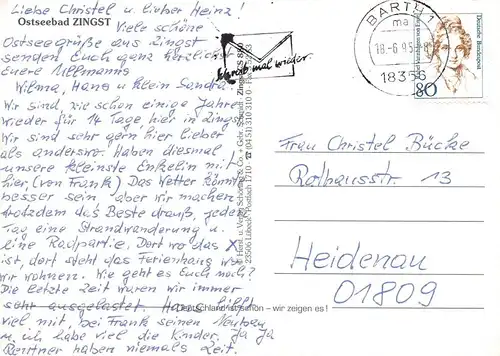 Liebe Christel u. lieber Heinz!
Ostseebad ZINGST
Viele schöne
Ostseegrüße aus Zingst
senden Euch ganz herzlichst
Euere Ullmanns
Wilma, Hans u. klein Sandra.
Wir sind wie schon einige Jahre
wieder für 14 Tage hier in Zingst.
Wir sind sehr gern hier lieber
als anderswo. Haben diesmal
unsere kleinste Enkelin mit
hier, (von Frank) Das Wetter könnte
besser sein aber wir machen
trotzdem das Beste drauß, jeden
Tag eine Strandwanderung u.
eine Radpartie. Dort wo das X
ist, dort steht das Ferienhaus wo
wir wohnen. Wie geht es Euch noch?
Die letzte Zeit waren wir immer
sehr ausgelastet. Hans hilft
viel mit, bei Frank seinen Neubau
u. ich habe viel die Kinder. Ja Ja
Rentner haben niemals Zeit.
Schreib mal wieder.
BARTH 1
ma
18.-6.95
18356
Deutsche Bundespost
80
Frau Christel Bücke
Rathausstr. 13
Heidenau
01809
Deutschland ist schön – wir zeigen es!